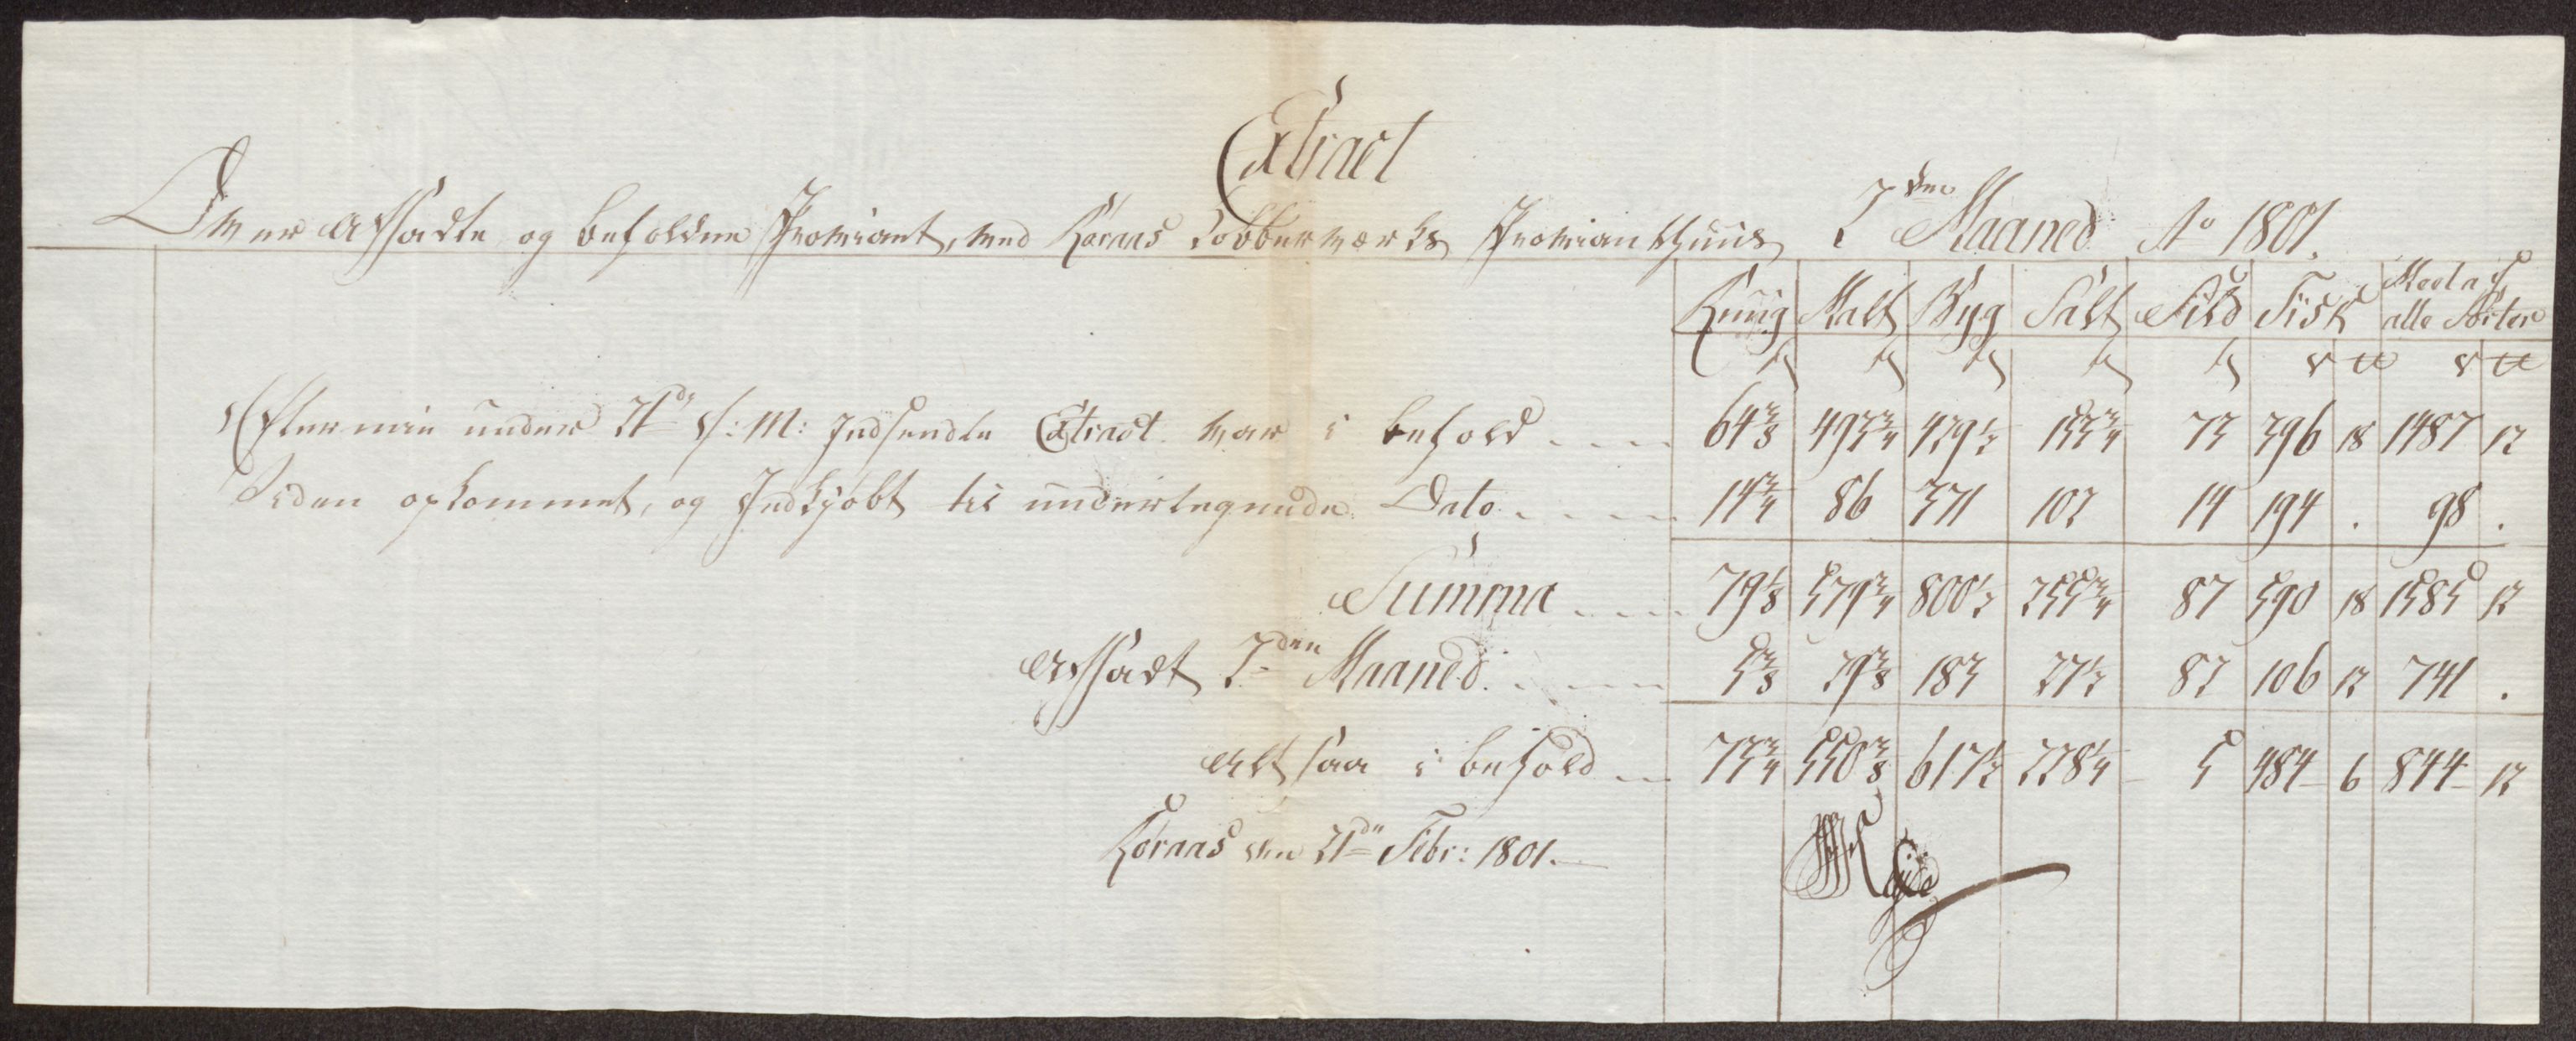 Extract
Over Afsadte og beholden Proviant, ved Røraas Kobberværks Provianthuus 2den Maaned Ao 1801.
Ruug Malt Byg Salt Sild Fisk Meel af alle Sorter
Efter min under 21de f: M: Indsendte Extract var i behold 64 3/8 493 3/4 429 1/2 153 3/4 73 396 18 1487 12
Siden opkommet, og Indkjøbt til undertegnede Dato 14 3/4 86 371 102 14 194 . 98 .
Summa 79 1/8 579 3/4 800 1/2 255 3/4 87 590 18 1585 12
Afsadt 2den Maaned 5 3/8 29 3/8 183 27 1/2 82 106 12 741 .
Alt saa i behold 73 3/4 550 3/8 617 1/2 228 1/4 5 484 6 844 12
Røraas den 21de Febr: 1801.